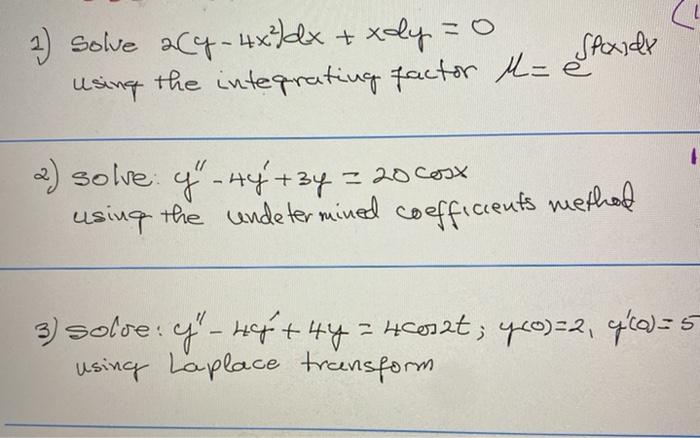 1) Solve 2(y - 4x²)dx + xdy = 0
using the integrating factor μ = e^∫P(x)dx
2) solve: y'' - 4y' + 3y = 20 cosx
using the undetermined coefficients method
3) solve: y'' - 4y' + 4y = 4cos2t; y(0)=2, y'(0)=5
using Laplace transform